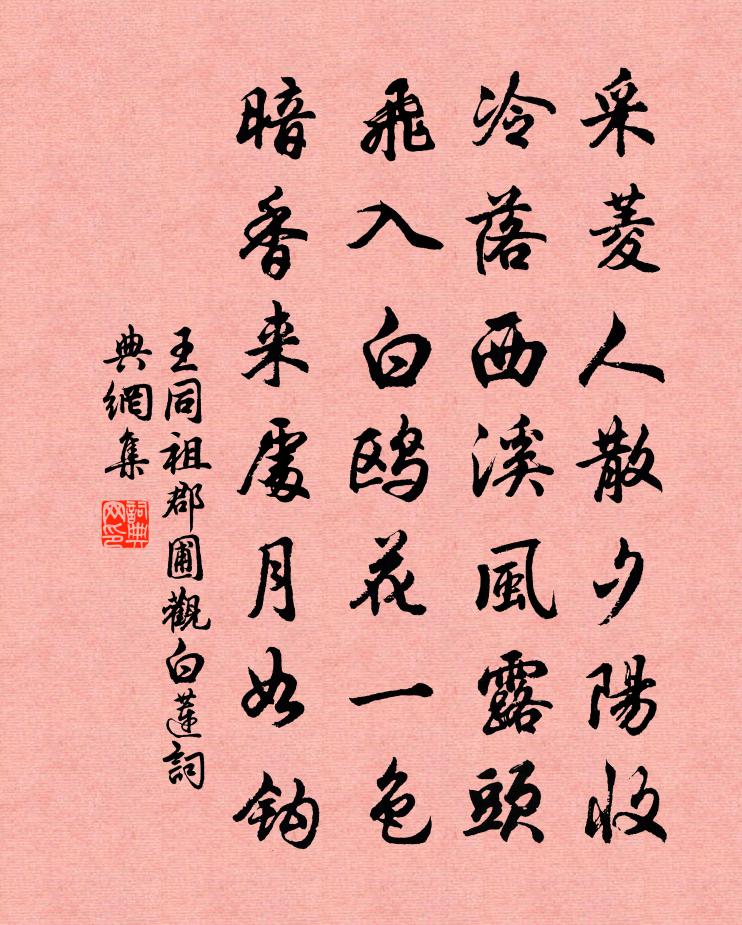 采菱人散夕陽收
冷落西溪風露頭
飛入白鸥花一色
暗香来處月如鈎
王同祖郡圃觀白蓮詞
典網集
詞典網印